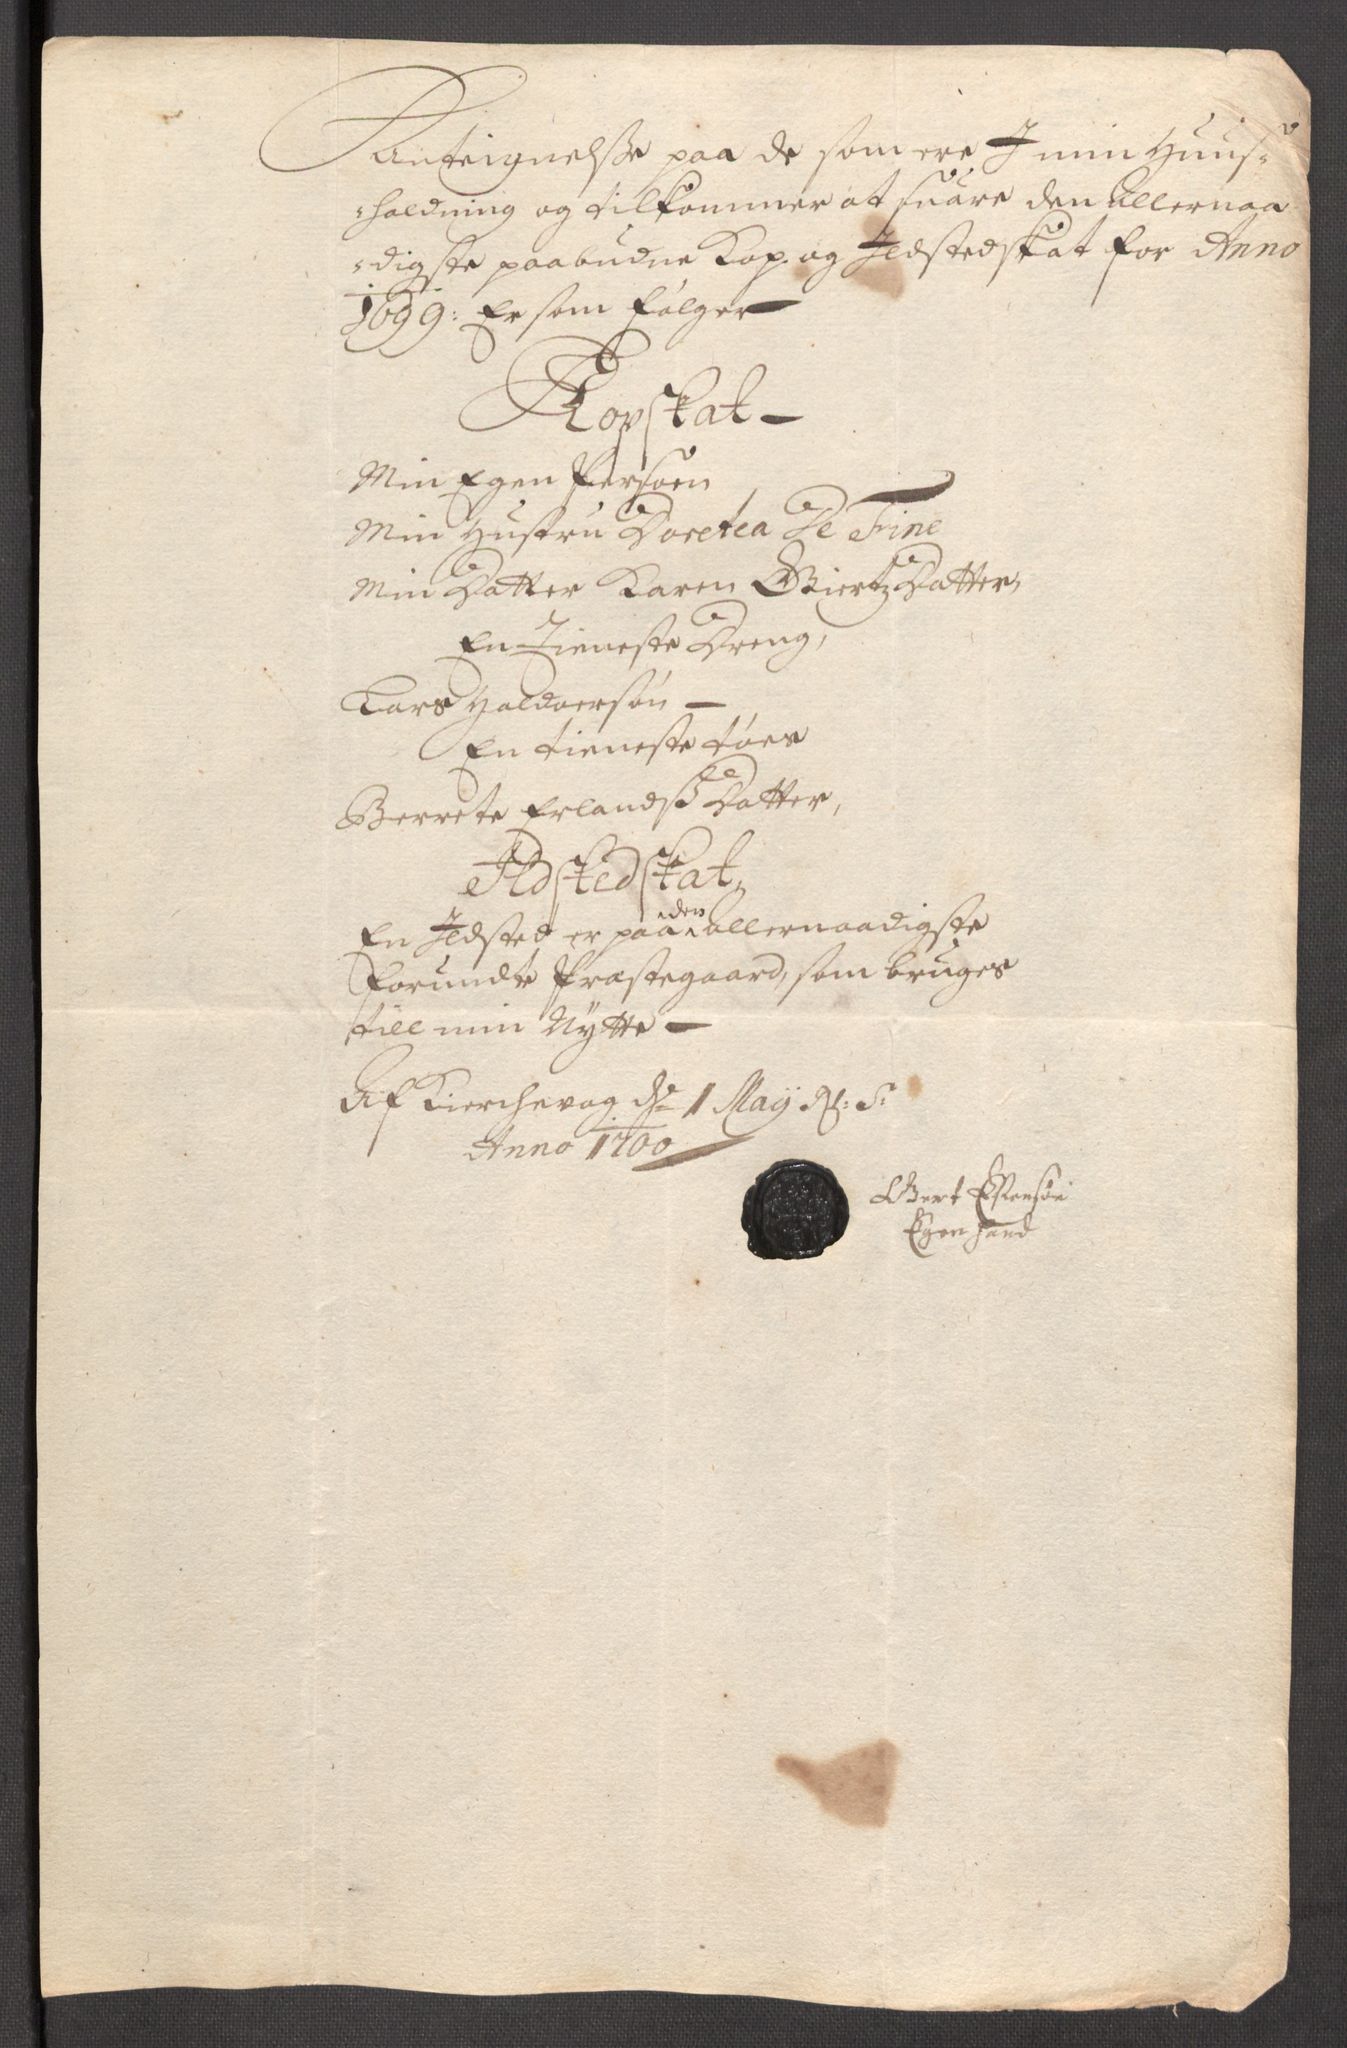 Anteignelsse paa de som ere J min Huus-
-holdning og tilkommer at suare den allernaa
-digste paabudne Kop- og Jldstedskat for Anno
1699: Er som følger
Kopskat
Min Egen Persoen
Min Hustru Doretea De Fine
Min Datter Karen Giertz Datter,
En Tieneste Dreng,
Lars Haldversøn
En tieneste tøes
Berrete Erlandsß Datter,
Jldstedskat,
En Jldsted er paa den allernaadigste
forundte Præstegaard, som bruges
till min Nytte
Af Kierchevog d. 1 Maij N: S:
Anno 1700
Giert
Egen Hand